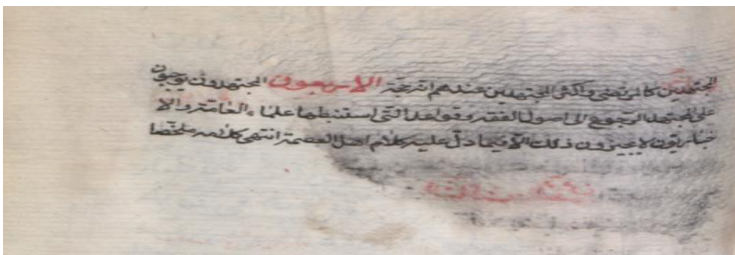 المجتهدين كالمرتضى واكثر المجتهدين عندهم انه حجة الاربعون المجتهدون يوجبون
على المجتهد الرجوع الى اصول الفقه وقواعد التي استنبطها علماء العامة والا
خباريون لا يجيزون ذلك الا فيما دل عليه كلام اهل العصمة انتهى كلامه ملخصا